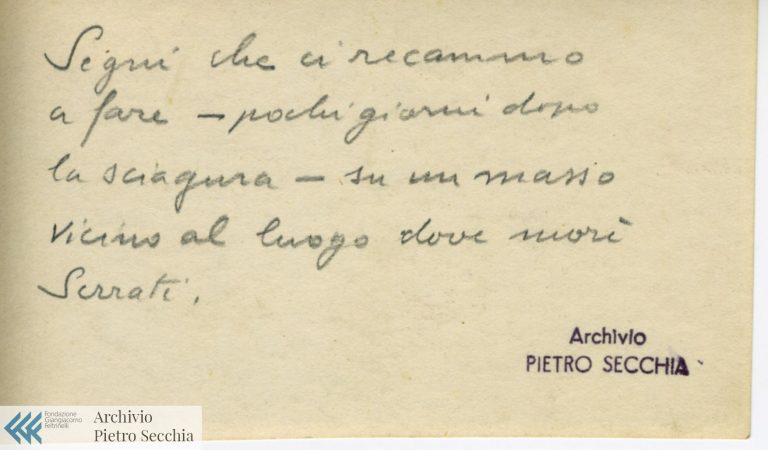 Segni che ci recammo
a fare – pochi giorni dopo
la sciagura – su un masso
vicino al luogo dove morì
Serrati.
Archivio
PIETRO SECCHIA
Fondazione
Giangiacomo
Feltrinelli
Archivio
Pietro Secchia